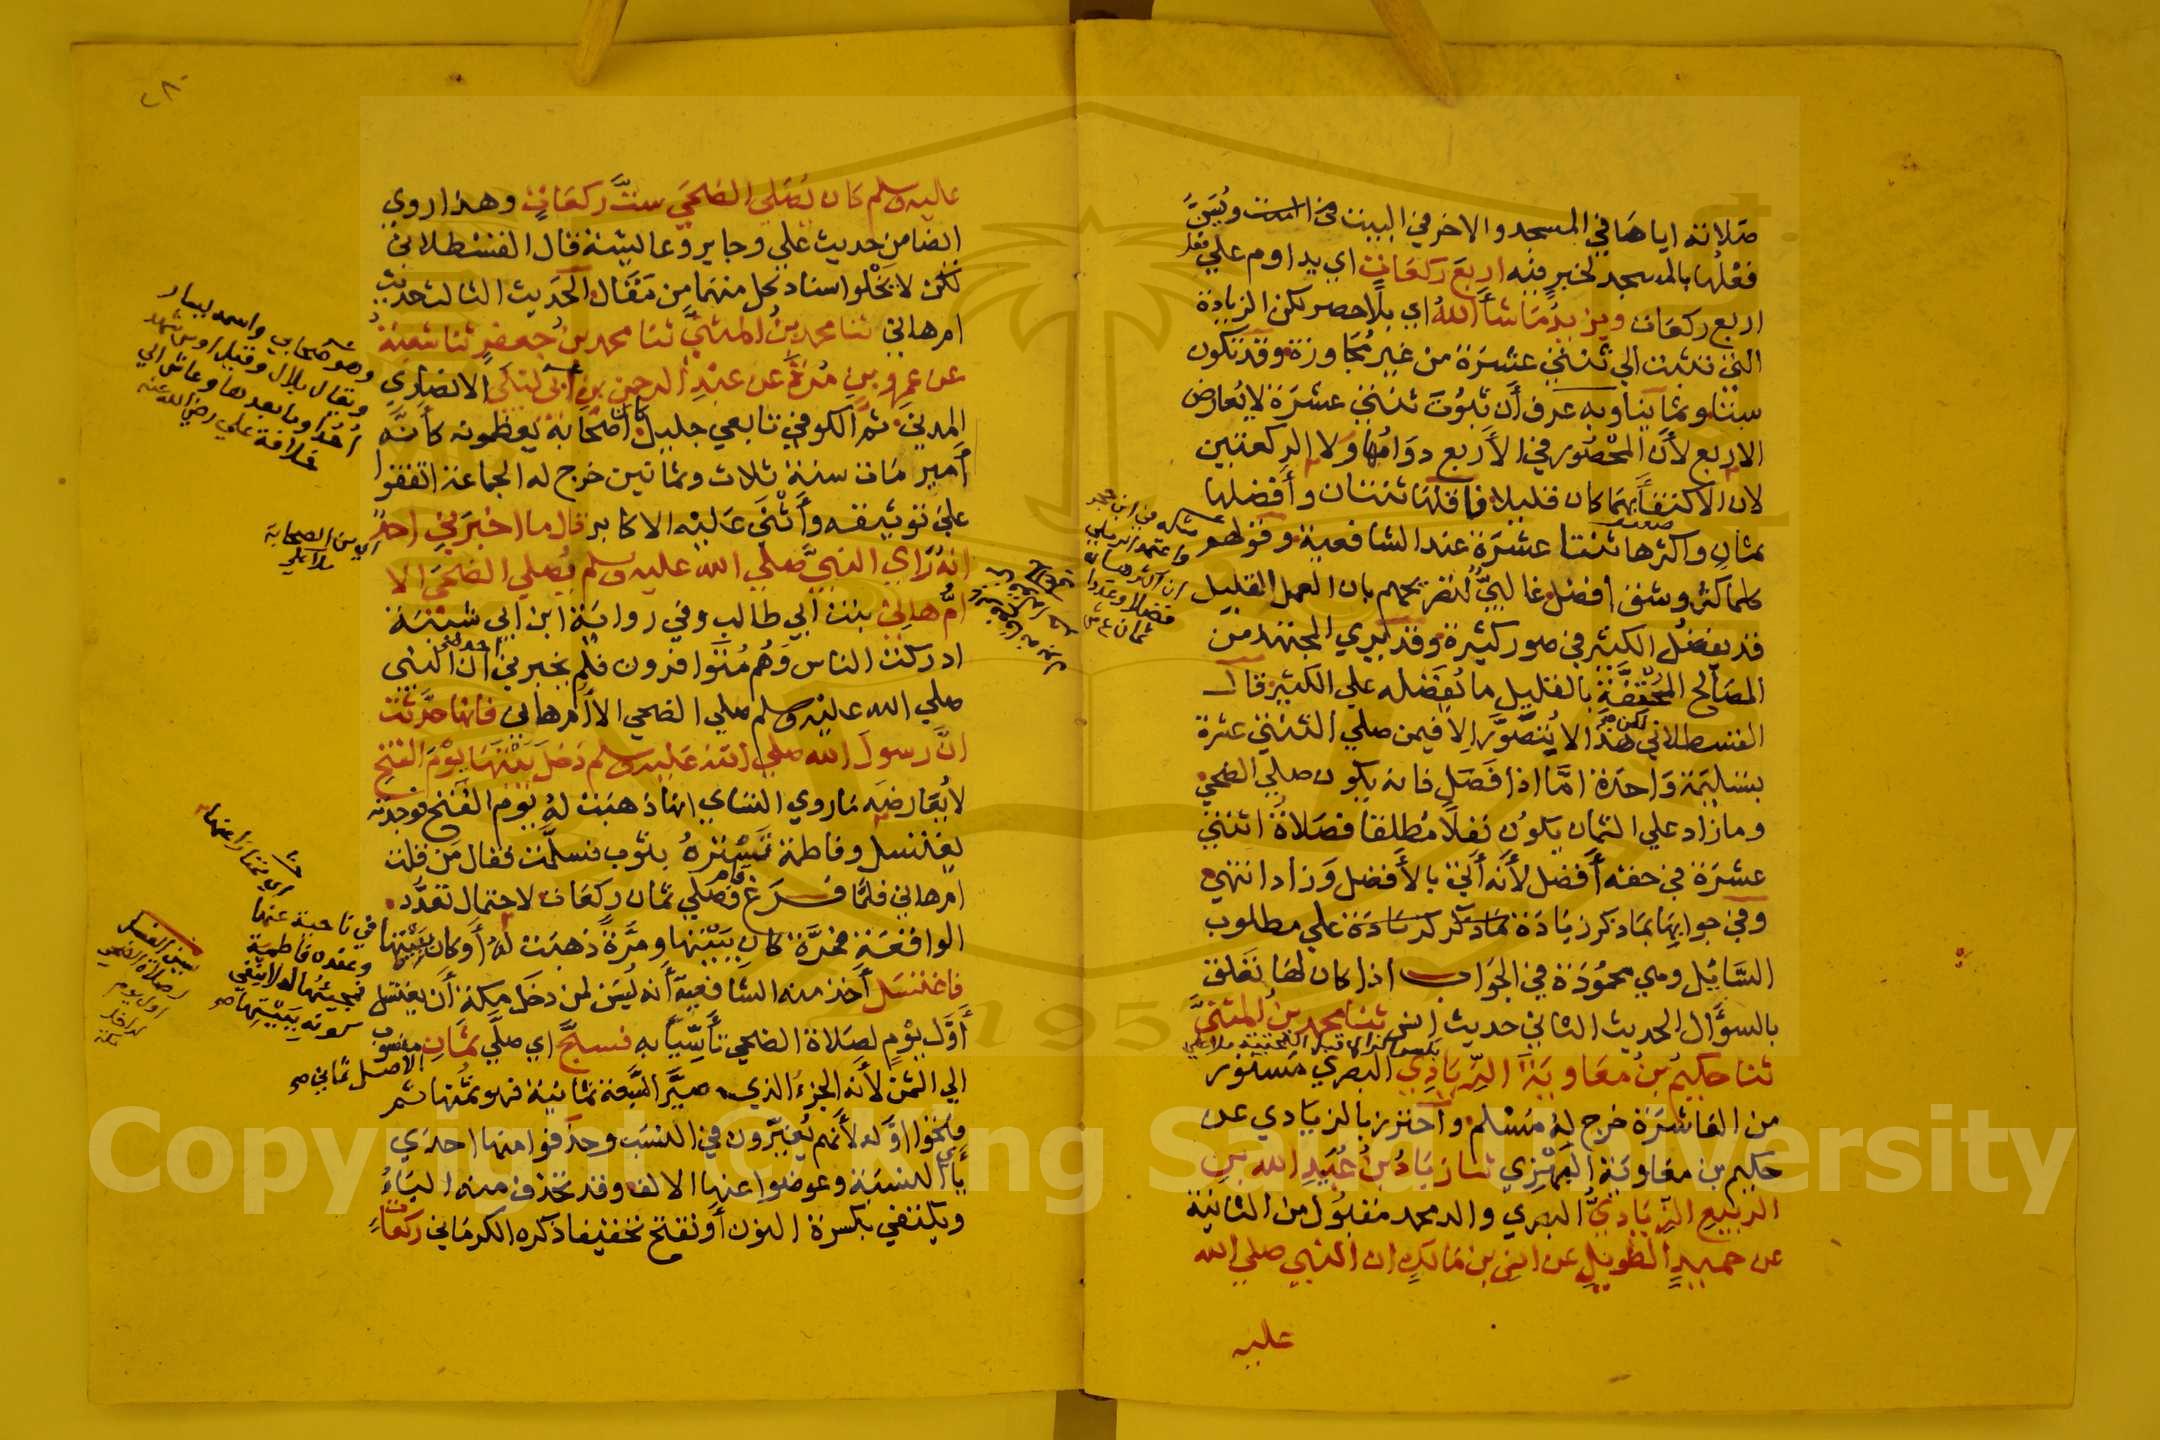 صلاته اياها في المسجد والاخر في البيت ويبين
فعلها بالمسجد لخبر فيه اربع ركعات اي يداوم علي فعل
اربع ركعات ويزيد ما شاء الله اي بلا حصر لكن الزيادة
التي ثبتت الي ثنتي عشرة من غير مجاوزة وقد تكون
ستا وثمانيا وبه عرف أن ثبوت ثنتي عشرة لا يعارض
الاربع لأن المحصور في الأربع دوامها ولا الركعتين
لان الاكتفا بهما كان قليلا فاقلها ثنتان وأفضلها
ثمان واكثرها ثنتا عشرة عند الشافعية وقولهم
كلما كثر وشق افضل غالبي لتصريحهم بان العمل القليل
قد يفضل الكثير في صور كثيرة وقد يري المجتهد من
المصالح المحتفة بالقليل ما يفضله علي الكثير قال
القسطلاني لكن هذا لا يتصور الا فيمن صلي الثنتي عشرة
بتسليمة واحدة امّا اذا فصل فانه يكون صلي الضحي
وما زاد علي الثمان يكون نفلا مطلقا فصلاة اثنتي
عشرة في حقه أفضل لأنه أتي بالأفضل وزاد انتهي
وفي جوابها بما ذكر زيادة علي مطلوب
السائل وهي محمودة في الجواب اذا كان لها تعلق
بالسؤال الحديث الثاني حديث انس ثنا محمد بن المثنى
ثنا حكيم بن معاوية الزيادي البصري مستور
من العاشرة خرج له مسلم واحترز بالزيادي عن
حكيم بن معاوية البهزي ثنا زياد بن عبيد الله بن
الربيع الزيادي البصري والد محمد مقبول من الثانية
عن حميد الطويل عن انس بن مالك ان النبي صلي الله
عليه
٢٨
عليه وسلم كان يصلي الضحي ست ركعات وهذا روي
ايضا من حديث علي وجابر وعائشة قال القسطلاني
لكن لا يخلوا اسناد كل منهما من مقال الحديث الثالث حديث
ام هاني ثنا محمد بن المثنى ثنا محمد بن جعفر ثنا شعبة
عن عمرو بن مرة عن عبد الرحمن بن أبي ليلى الانصاري
المدني ثم الكوفي تابعي جليل كان اصحابه يعظمونه كأنه
أمير مات سنة ثلاث وثمانين خرج له الجماعة اتفقوا
علي توثيقه وأثني عليه الاكابر قال ما اخبرني احد
انه رأي النبي صلي الله عليه وسلم يصلي الضحي الا
امّ هاني بنت أبي طالب وفي رواية ابن ابي شيبة
ادركت الناس وهم متوافرون فلم يخبرني احد ان النبي
صلي الله عليه وسلم صلي الضحي الا أم هاني فانها حدثت
انّ رسول الله صلي الله عليه وسلم دخل بيتها يوم الفتح
لا يعارضه ما روي النساي انها ذهبت له يوم الفتح فوجدته
يغتسل وفاطمة تستره بثوب فسلمت فقال من قلت
ام هاني فلما فرغ قام فصلي ثمان ركعات لاحتمال تعدد
الواقعة فمرة كان ببيتها ومرة ذهبت له أو كان ببيتها
فاغتسل أخذ منه الشافعية أنه يسن لمن دخل مكة أن يغتسل
أول يوم لصلاة الضحي تأسيا به فسبح اي صلي ثمان منسوب
الي الثمن لأنه الجزء الذي صير السبعة ثمانية فهو ثمنها ثم
فتحوا اوله لأنهم يغيرون في النسب وحذفوا منها احدي
يائي النسبة وعوضوا عنها الالف وقد تحذف منه الياء
ويكتفي بكسرة النون أو تفتح تخفيفا ذكره الكرماني ركعات
وهو صحابي واسمه يسار
ويقال بلال وقيل اوس شهد
أحدا وما بعدها وعاش الي
خلافة علي رضي الله عنه
اي من الصحابة
ملا علي
في ناحية عنها
وعنده فاطمة
الاصل ثماني صح
يسن الغسل
لصلاة الضحي
اول يوم